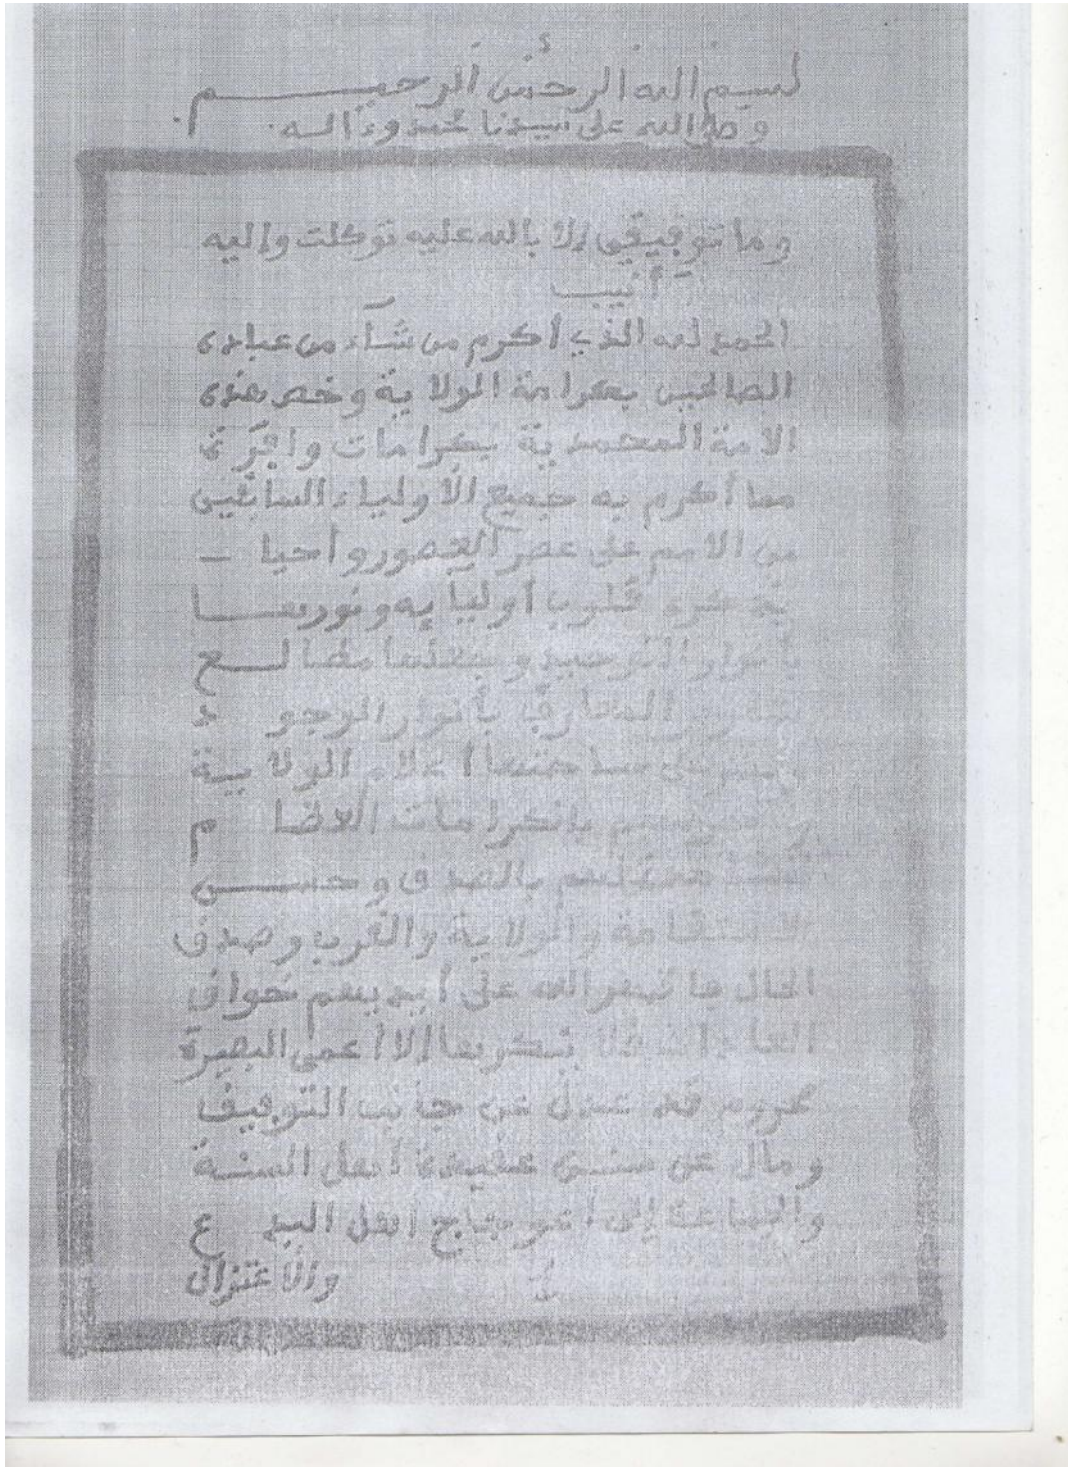 بسم الله الرحمن الرحيم
وصلى الله على سيدنا محمد وءاله
وما توفيقي إلا بالله عليه توكلت وإليه
أنيب
الحمد لله الذي أكرم من شآء من عباده
الصالحين بكرامة الولاية وخص هذه
الامة المحمدية بكرامات وافرة
مما أكرم به جميع الأولياء السابقين
من الامم على عصر العصور وأحيا
بذكره قلوب أوليايه ونورها
بأنوار التوحيد و مطالع
المعارف بأنوار الوجود
على ساحتها أعلام الولاية
بالكرامات
لهم بالصدق وحسن
الاستقامة والولاية والقرب وصدق
الحال فأظهر الله على أيديهم خوارق
العادات فلا ينكرها إلا أعمى البصيرة
محروم قد عدل عن جانب التوفيق
ومال عن عقيدة أهل السنة
والجماعة إلى اعوجاج أهل البدع
والاعتزال